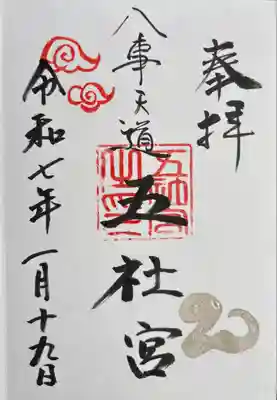 奉拝
八事天道
五社宮
令和七年
一月十九日